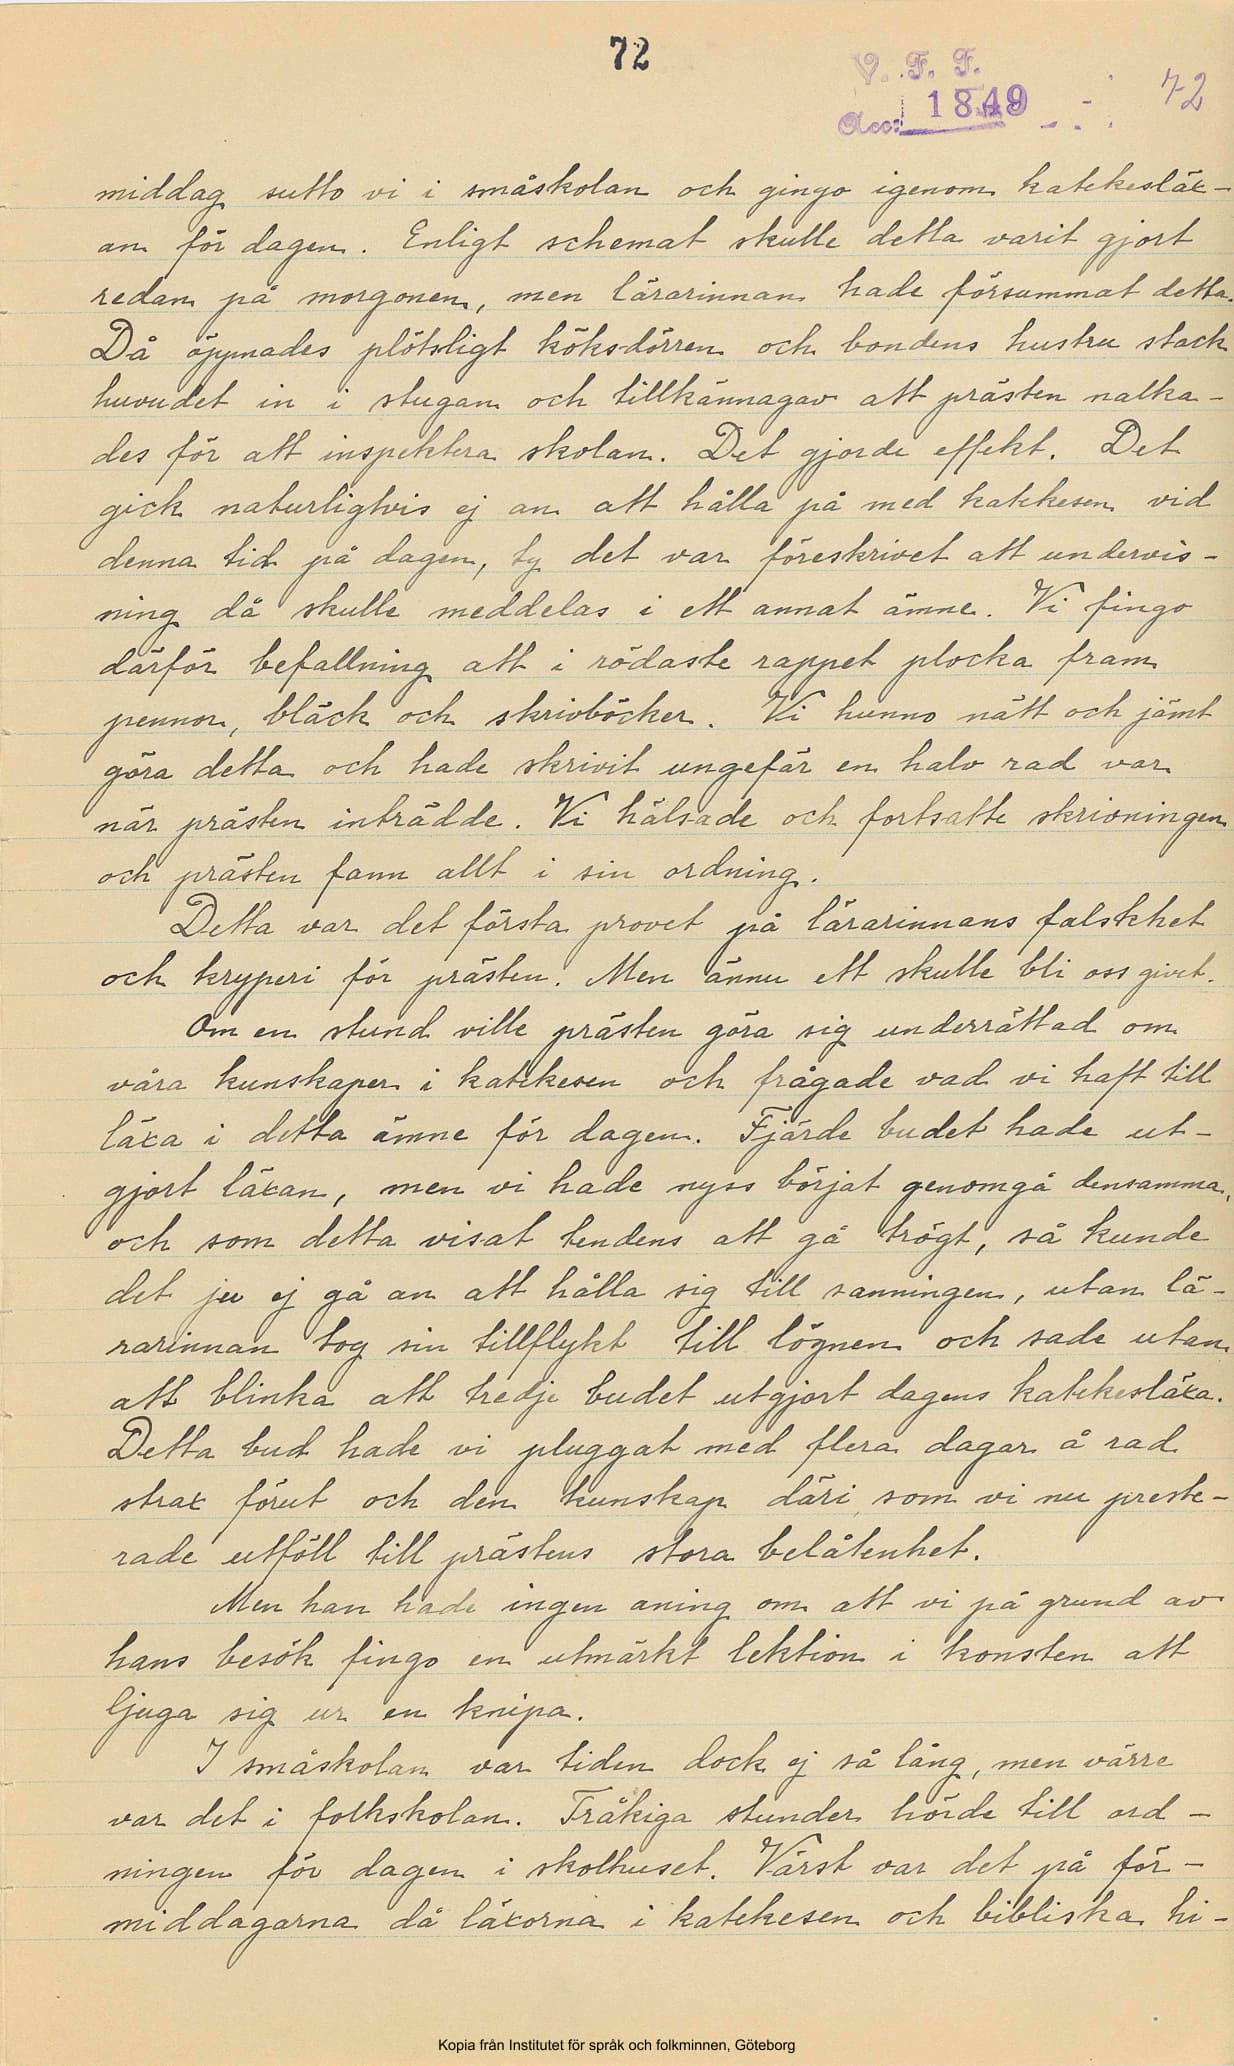 72
V. F. F.
72
Acc: 1849
middag sutto vi i småskolan och gingo igenom katekesläx-
an för dagen. Enligt schemat skulle detta varit gjort
redan på morgonen, men lärarinnan hade försummat detta.
Då öppnades plötsligt köksdörren och bondens hustru stack
huvudet in i stugan och tillkännagav att prästen nalka-
des för att inspektera skolan. Det gjorde effekt. Det
gick naturligtvis ej an att hålla på med katekesen vid
denna tid på dagen, ty det var föreskrivet att undervis-
ning då skulle meddelas i ett annat ämne. Vi fingo
därför befallning att i rödaste rappet plocka fram
pennor, bläck och skrivböcker. Vi hunno nätt och jämt
göra detta och hade skrivit ungefär en halv rad var
när prästen inträdde. Vi hälsade och fortsatte skrivningen
och prästen fann allt i sin ordning.
Detta var det första provet på lärarinnans falskhet
och kryperi för prästen. Men ännu ett skulle bli oss givet.
Om en stund ville prästen göra sig underrättad om
våra kunskaper i katekesen och frågade vad vi haft till
läxa i detta ämne för dagen. Fjärde budet hade ut-
gjort läxan, men vi hade nyss börjat genomgå densamma,
och som detta visat tendens att gå trögt, så kunde
det ju ej gå an att hålla sig till sanningen, utan lä-
rarinnan tog sin tillflykt till lögnen och sade utan
att blinka att tredje budet utgjort dagens katekesläxa.
Detta bud hade vi pluggat med flera dagar å rad
strax förut och den kunskap däri som vi nu preste-
rade utföll till prästens stora belåtenhet.
Men han hade ingen aning om att vi på grund av
hans besök fingo en utmärkt lektion i konsten att
ljuga sig ur en knipa.
I småskolan var tiden dock ej så lång, men värre
var det i folkskolan. Tråkiga stunder hörde till ord-
ningen för dagen i skolhuset. Värst var det på för-
middagarna då läxorna i katekesen och bibliska hi-
Kopia från Institutet för språk och folkminnen, Göteborg